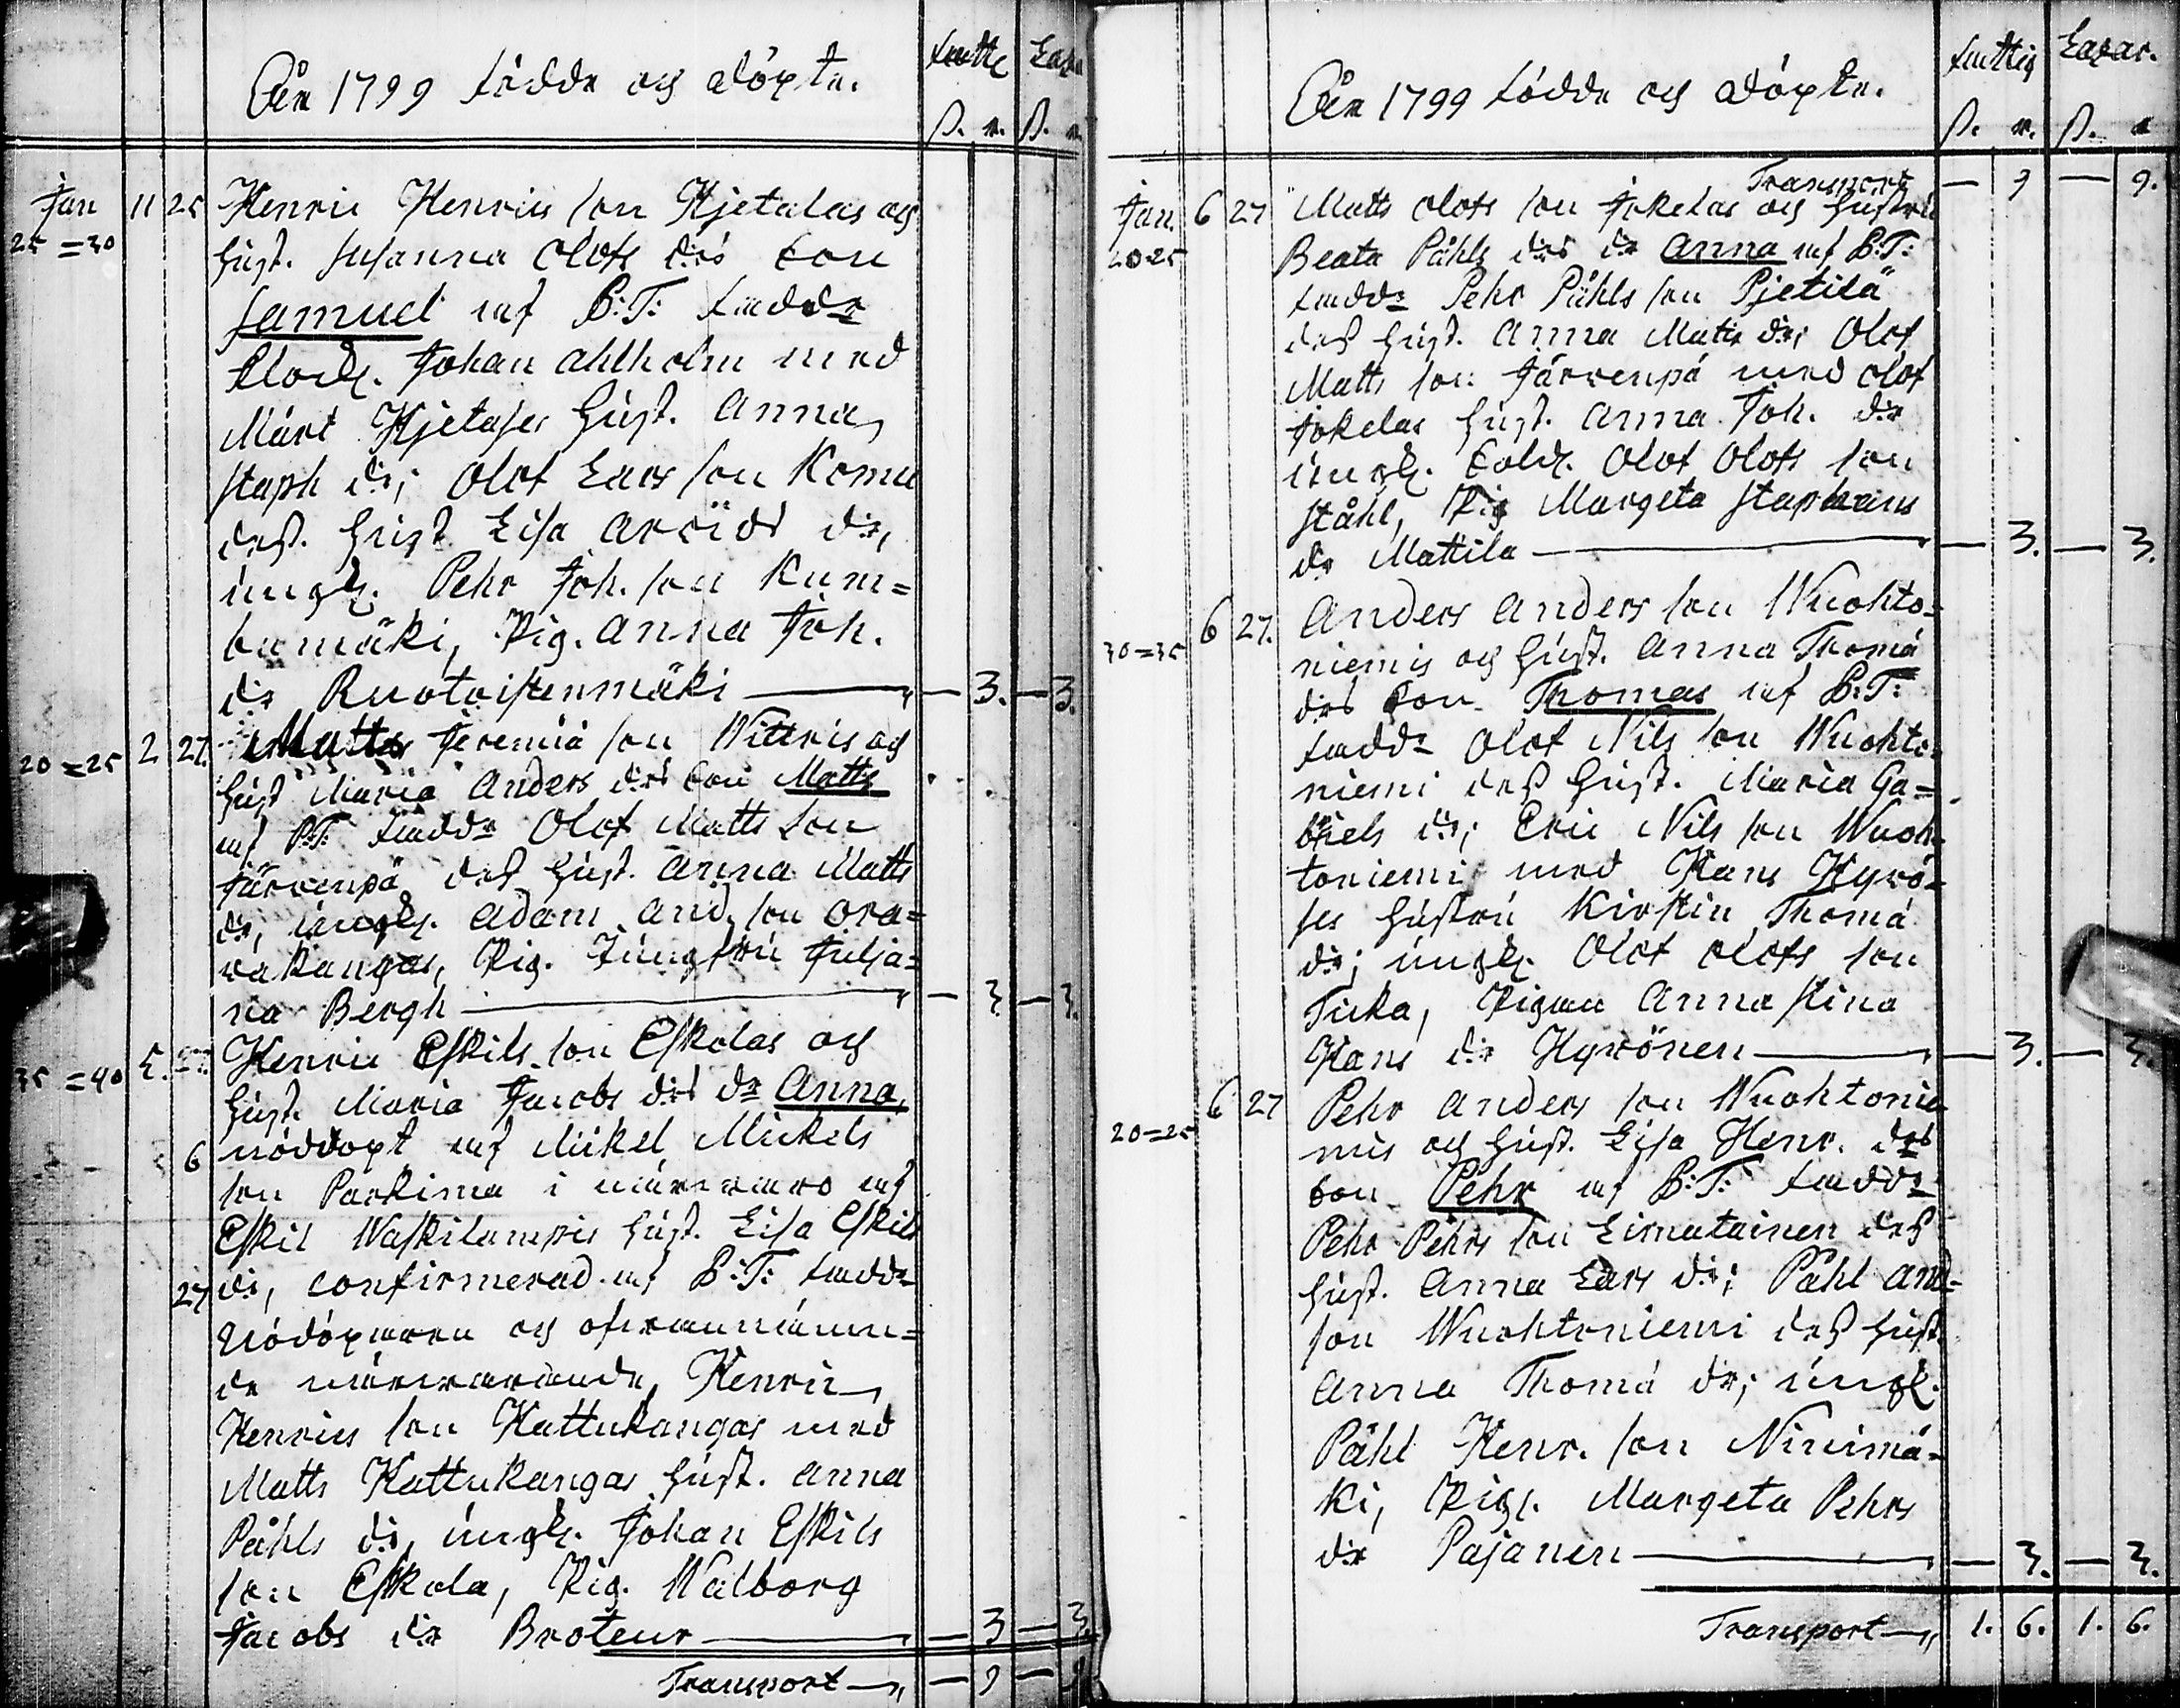 Åhr 1799 födde och döpte.
fattig Lazar.
ß. r. ß. r.
Jan 11 25 Henric Henrics son Kjetalas och
25=30 hust. Susanna Olofs drs son
Samuel af B:T: fadd:r
Klock. Johan Ahlholm med
Märt Kjetases hust. Anna
Staph dr; Olof Lars son Komu
dess hust Lisa Arvids dr,
ungk. Pehr Joh. son Kum=
bumäki, Pig. Anna Joh.
dr Ruotoistenmäki — — 3. — 3.
20=25 2 27. Matts Jeremiæ son Wittvis och
hust Maria Anders drs son Matts
af B:T: fadd:r Olof Matts son
Järvenpä dess hust. Anna Matts
dr, ungk. Adam And. son Ora=
vakangas, Pig. Jungfru Julja=
na Bergh — — 3. — 3.
35=40 5. 27. Henric Eskils son Eskolas och
hust. Maria Jacobs drs dr Anna,
6 nöddöpt af Mickel Mickels
son Parkima i närvaro af
Eskil Waskilampis hust. Lisa Eskils
27 dr, confirmerad af B:T: fadd:r
Nödöparen och ofvannämn=
de närvarande, Henric
Henrics son Kattukangas med
Matts Kattukangas hust. Anna
Påhls dr, ungk. Johan Eskils
son Eskola, Pig. Walborg
Jacobs dr Broteur — — 3 — 3.
Transport — — 9 — 9
Åhr 1799 födde och döpte.
fattig Lazar.
ß. r. ß. r.
Transport — 9 — 9.
Jan. 6 27 Matts Olofs son Jokelas och hustru
20=25 Beata Påhls drs dr Anna af B:T:
fadd:r Pehr Påhls son Pjetilä
dess hust. Anna Matts dr; Olof
Matts son Järvenpä med Olof
Jokelas hust. Anna Joh. dr
ungk. Sold. Olof Olofs son
Ståhl, Pig Margeta Staphans
dr Mattila — — 3. — 3.
6 27. Anders Anders son Wuohto=
30=35 niemis och hust. Anna Thomæ
drs son Thomas af B:T:
fadd:r Olof Nils son Wuohto=
niemi dess hust. Maria Ga=
briels dr; Eric Nils son Wuoh=
toniemi med Hans Hyvö=
ses hustru Kirstin Thomæ
dr; ungk. Olof Olofs son
Ticka, Pigan Anna Stina
Hans dr Hyvönen — — 3. — 3.
6 27 Pehr Anders son Wuohtonie
20=25 mis och hust. Lisa Henr. drs
son Pehr af B:T: fadd:r
Pehr Pehrs son Limatainen dess
hust. Anna Lars dr; Påhl And=
son Wuohtoniemi dess hust.
Anna Thomæ dr; ungk.
Påhl Henr. son Ninimä=
ki, Pig. Margeta Pehrs
dr Pajanen — — 3. — 3.
Transport — 1. 6. 1. 6.